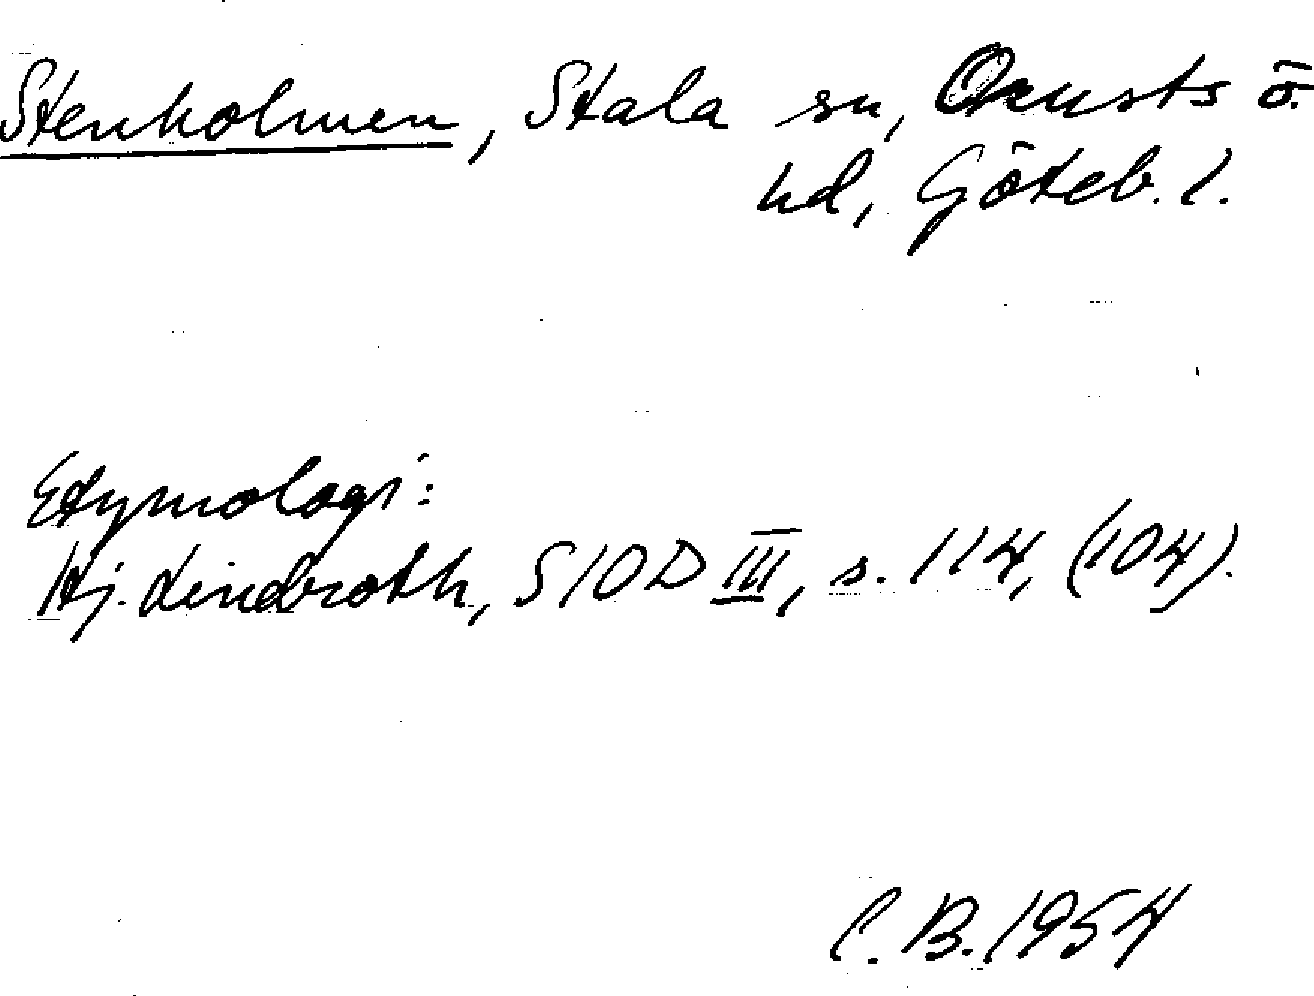 Stenholmen, Stala sn, Orusts ö.
hd, Göteb. l.
Etymologi:
Hj. Lindroth, SIOD III, s. 114, (104).
C. B. 1954